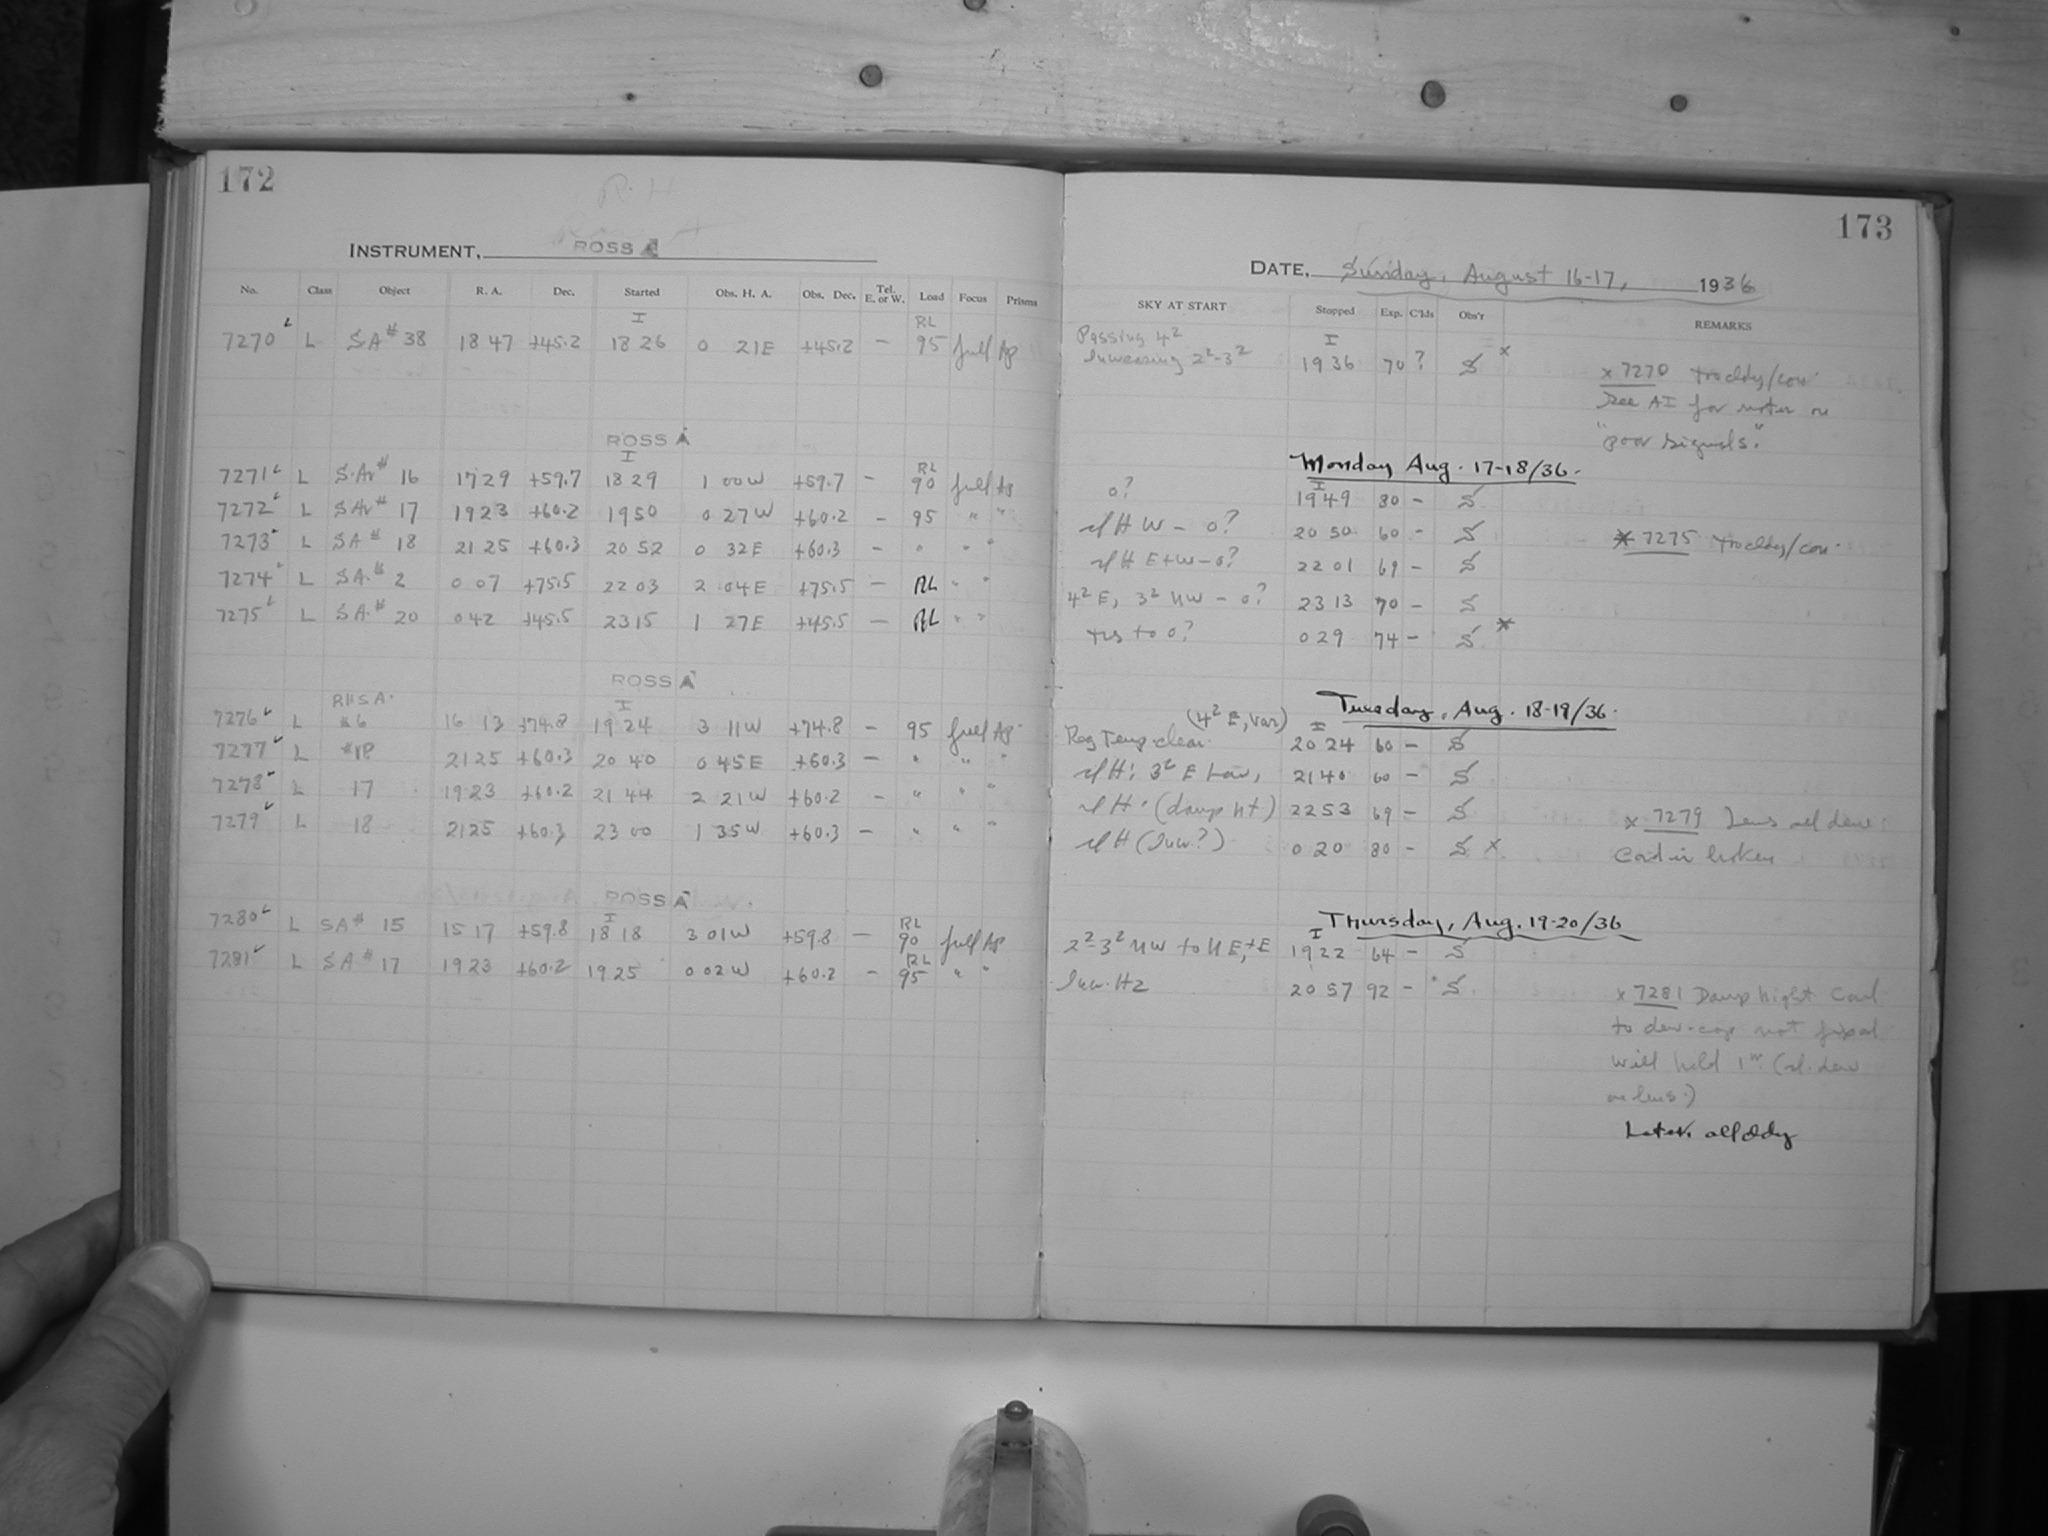 172
R.H.
INSTRUMENT, ROSS A
No. Class Object R. A. Dec. Started Obs. H. A. Obs. Dec. Tel. E. or W. Load Focus Prisms
7270 L SA # 38 18 47 +45.2 I 18 26 0 21E +45.2 — RL 95 full Ap
ROSS A
7271 L S.Ar # 16 17 29 +59.7 I 18 29 1 00W +59.7 - RL 90 full Ap
7272 L SAr # 17 19 23 +60.2 19 50 0 27W +60.2 - 95 " "
7273 L SA # 18 21 25 +60.3 20 52 0 32E +60.3 - " " "
7274 L SA. # 2 0 07 +75.5 22 03 2 04E +75.5 — RL " "
7275 L SA. # 20 0 42 +45.5 23 15 1 27E +45.5 — RL " "
ROSS A
RHSA.
7276 L #6 16 13 +74.8 I 19 24 3 11W +74.8 - 95 full Ap
7277 L #18 21 25 +60.3 20 40 0 45E +60.3 — " " "
7278 L 17 19 23 +60.2 21 44 2 21W +60.2 - " " "
7279 L 18 21 25 +60.3 23 00 1 35W +60.3 — " " "
ROSS A
7280 L SA # 15 15 17 +59.8 I 18 18 3 01W +59.8 — RL 90 full Ap
7281 L SA # 17 19 23 +60.2 19 25 0 02W +60.2 - RL 95 " "
173
DATE, Sunday, August 16-17, 1936
SKY AT START Stopped Exp. C'lds Obs'r REMARKS
Passing 4²
Increasing 2²-3² I 19 36 70 ? S x
x 7270
See AI for notes on
"poor signals."
Monday Aug. 17-18/36.
0? I 19 49 80 - S
H W - 0? 20 50 60 - S
* 7275
H E+W-0? 22 01 69 - S
4² E, 3² NW - 0? 23 13 70 - S
to 0? 0 29 74 - S *
Tuesday, Aug. 18-19/36.
(4² E, var)
Reg Temp clear. I 20 24 60 - S
H; 3² E low, 21 40 60 - S
H. (damp nt) 22 53 69 - S
x 7279 Lens all dew
H (Incr.?) 0 20 80 - S x
Cord is broken
Thursday, Aug. 19-20/36
2²-3² NW to NE,+E I 19 22 64 - S
Incr. Hz 20 57 92 - S
x 7281 Damp night Cord
to dew-cap not fixed
will hold 1st (sl. dew
on lens.)
Later all ddy